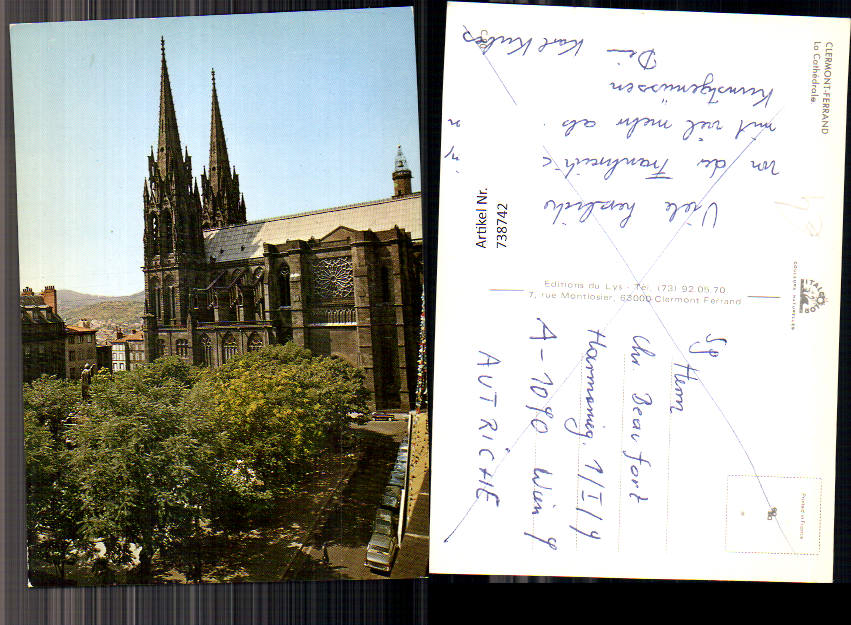 CLERMONT-FERRAND
La Cathédrale.
Viele herzliche
von der Frankreich
mit viel mehr als
Kunstgenüssen
Dein Karl
Artikel Nr.
738742
Editions du Lys - Tél. (73) 92.05.70.
7, rue Montlosier, 63000 Clermont Ferrand
COULEURS NATURELLES
Printed in France
Herrn
Chr. Beaufort
1/I/9
A-1090 Wien 9
AUTRICHE